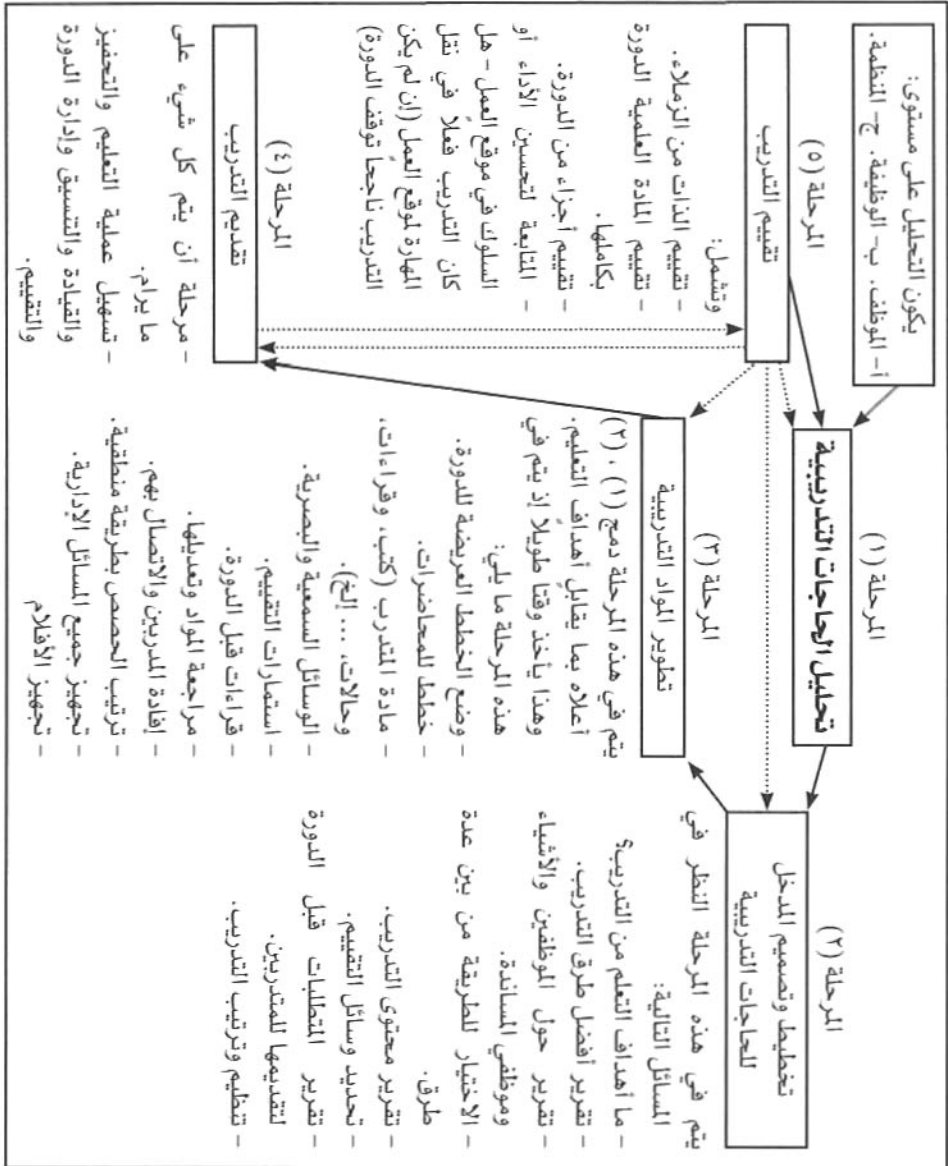 يكون التحليل على مستوى:
أ- الموظف. ب- الوظيفة. ج- المنظمة.
المرحلة (١)
تحليل الحاجات التدريبية
المرحلة (٢)
تخطيط وتصميم المدخل
للحاجات التدريبية
يتم في هذه المرحلة النظر في
المسائل التالية:
- ما أهداف التعلم من التدريب؟
- تقرير أفضل طرق التدريب.
- تقرير حول الموظفين والأشياء
وموظفي المساندة.
- الاختيار للطريقة من بين عدة
طرق.
- تقرير محتوى التدريب.
- تحديد وسائل التقييم.
- تقرير المتطلبات قبل الدورة
لتقديمها للمتدربين.
- تنظيم وترتيب التدريب.
المرحلة (٣)
تطوير المواد التدريبية
يتم في هذه المرحلة دمج (١) ، (٢)
أعلاه بما يقابل أهداف التعليم.
وهذا يأخذ وقتا طويلاً إذ يتم في
هذه المرحلة ما يلي:
- وضع الخطط العريضة للدورة.
- خطط للمحاضرات.
- مادة المتدرب (كتب، وقراءات،
وحالات، ... إلخ).
- الوسائل السمعية والبصرية.
- استمارات التقييم.
- قراءات قبل الدورة.
- مراجعة المواد وتعديلها.
- إفادة المدربين والاتصال بهم.
- ترتيب الحصص بطريقة منطقية.
- تجهيز جميع المسائل الإدارية.
- تجهيز الأفلام
المرحلة (٤)
تقديم التدريب
- مرحلة أن يتم كل شيء على
ما يرام.
- تسهيل عملية التعليم والتحفيز
والقيادة والتنسيق وإدارة الدورة
والتقييم.
المرحلة (٥)
تقييم التدريب
وتشمل:
- تقييم الذات من الزملاء.
- تقييم المادة العلمية الدورة
بكاملها.
- تقييم أجزاء من الدورة.
- المتابعة لتحسين الأداء أو
السلوك في موقع العمل - هل
كان التدريب فعلاً في نقل
المهارة لموقع العمل (إن لم يكن
التدريب ناجحا توقف الدورة)